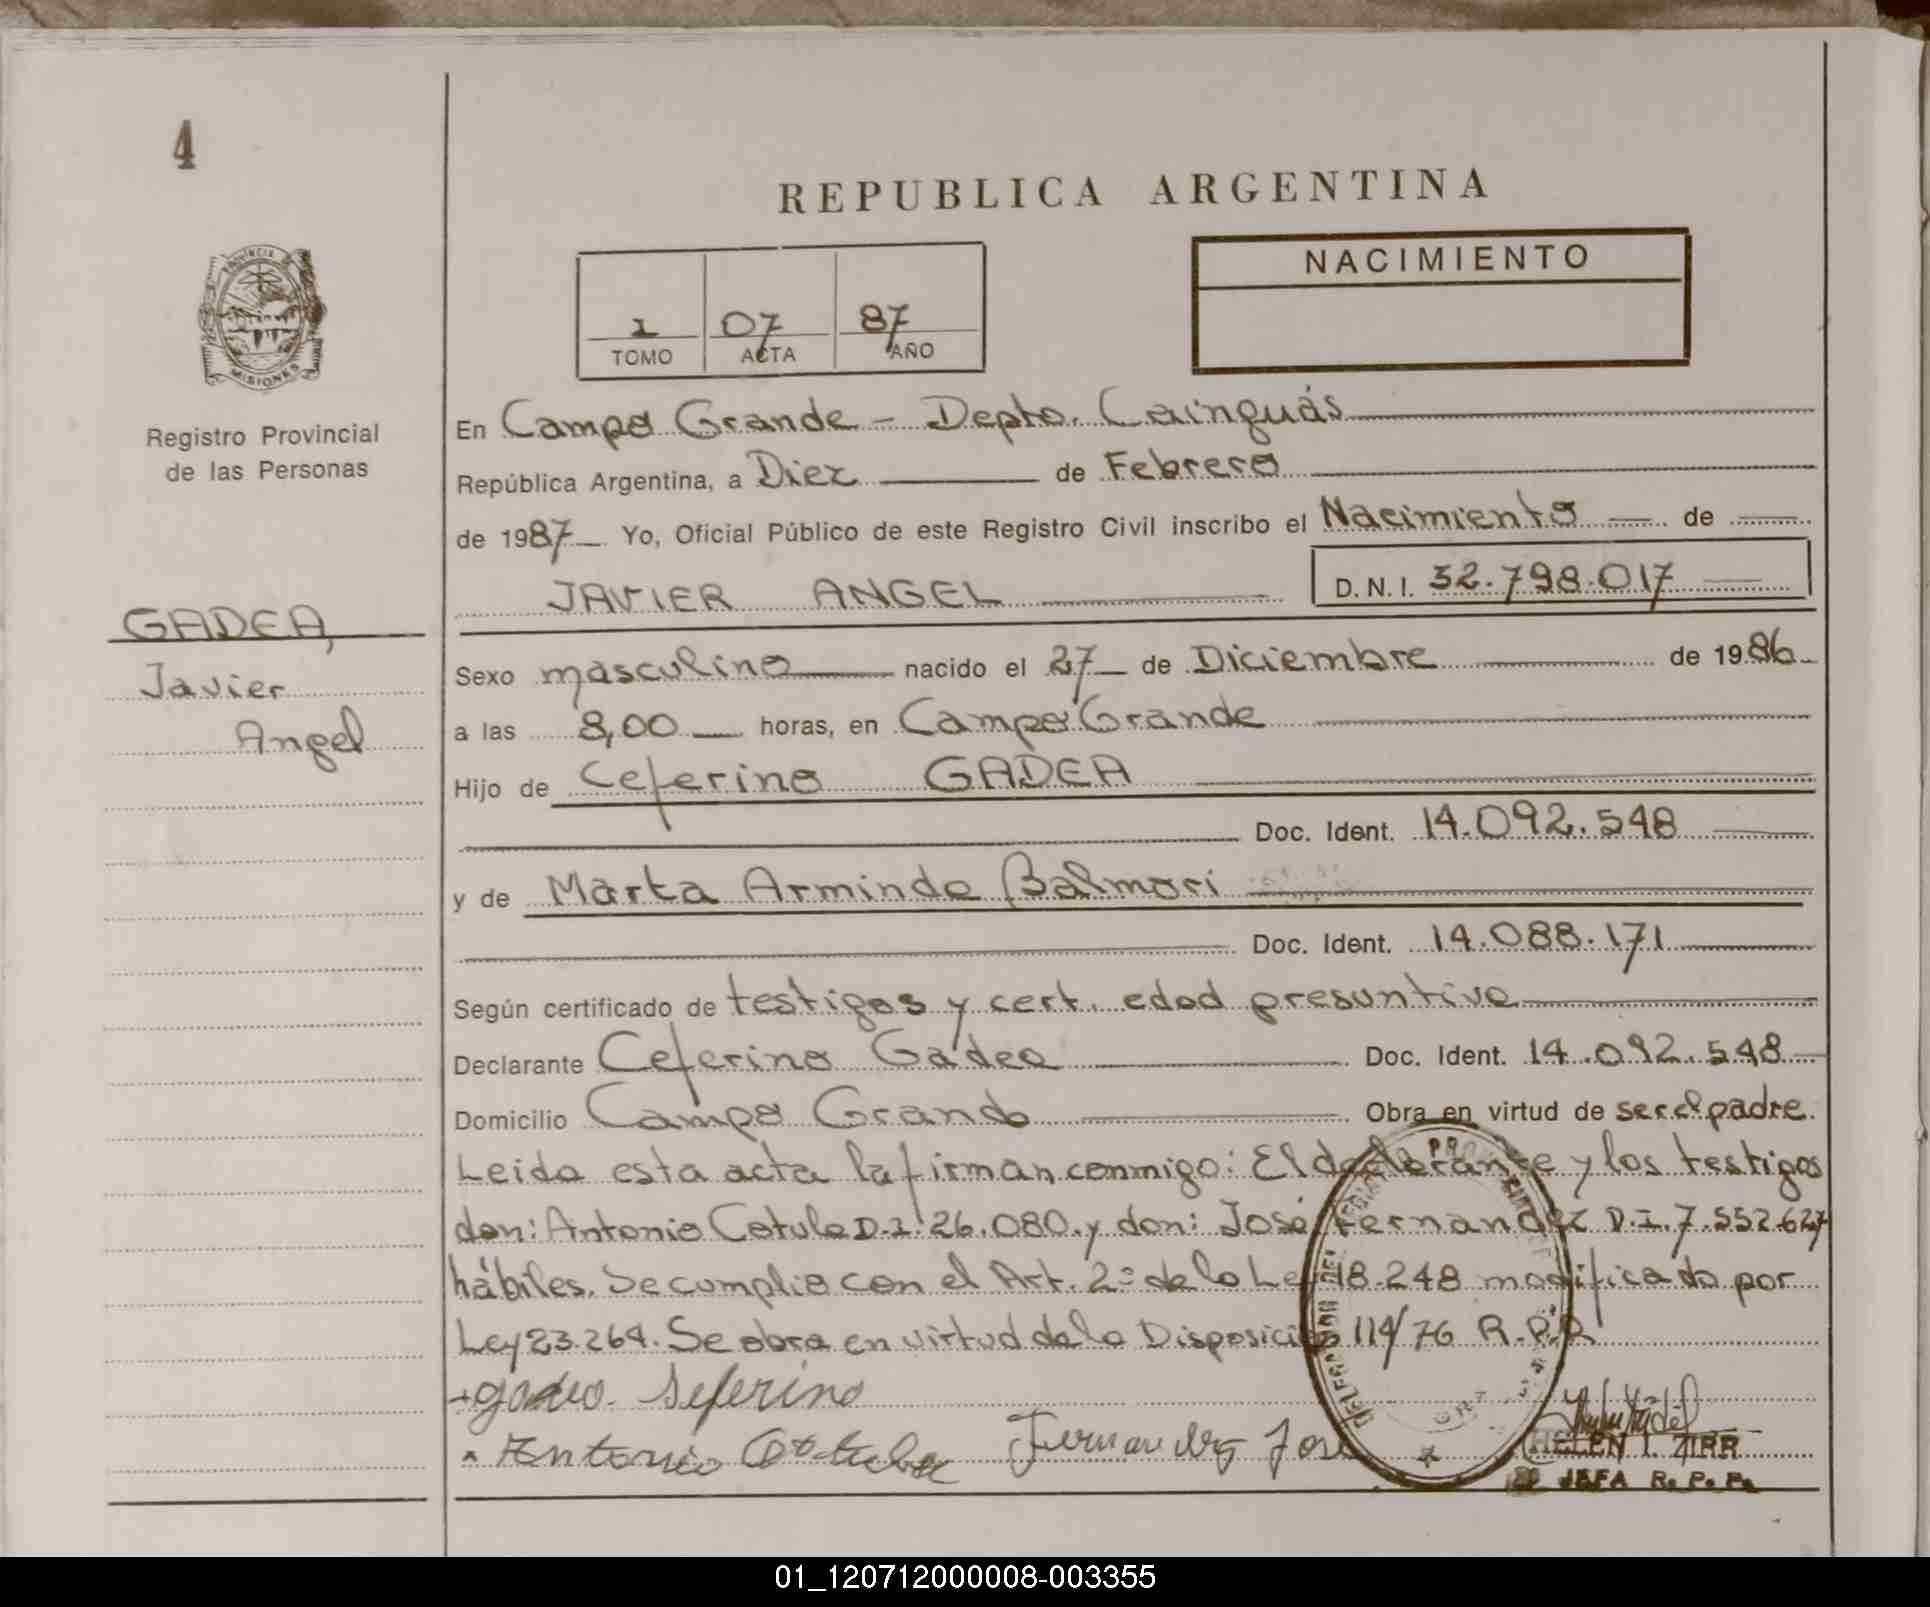 4
REPUBLICA ARGENTINA
NACIMIENTO
1 07 87
TOMO ACTA AÑO
PROVINCIA
MISIONES
Registro Provincial
de las Personas
GADEA,
Javier
Angel
En Campo Grande - Depto. Cainguás
República Argentina, a Diez de Febrero
de 1987 Yo, Oficial Público de este Registro Civil inscribo el Nacimiento de
JAVIER ANGEL D.N.I. 32.798.017
Sexo masculino nacido el 27 de Diciembre de 1986
a las 8,00 horas, en Campo Grande
Hijo de Ceferino GADEA
Doc. Ident. 14.092.548
y de Marta Arminda Balmori
Doc. Ident. 14.088.171
Según certificado de testigos y cert. edad presuntiva
Declarante Ceferino Gadea Doc. Ident. 14.092.548
Domicilio Campo Grande Obra en virtud de ser el padre.
Leida esta acta la firman conmigo: El declarante y los testigos
don: Antonio Cotula D.I. 26.080. y don: José Fernandez D.I. 7.552.627
hábiles. Se cumplio con el Art. 2º de la Ley 18.248 modificado por
Ley 23.264. Se obra en virtud de la Disposición 114/76 R.P.P.
gadeo Seferino
Antonio Fernandez José
HELEN I. ZIRR
JEFA R. P. P.
01_120712000008-003355